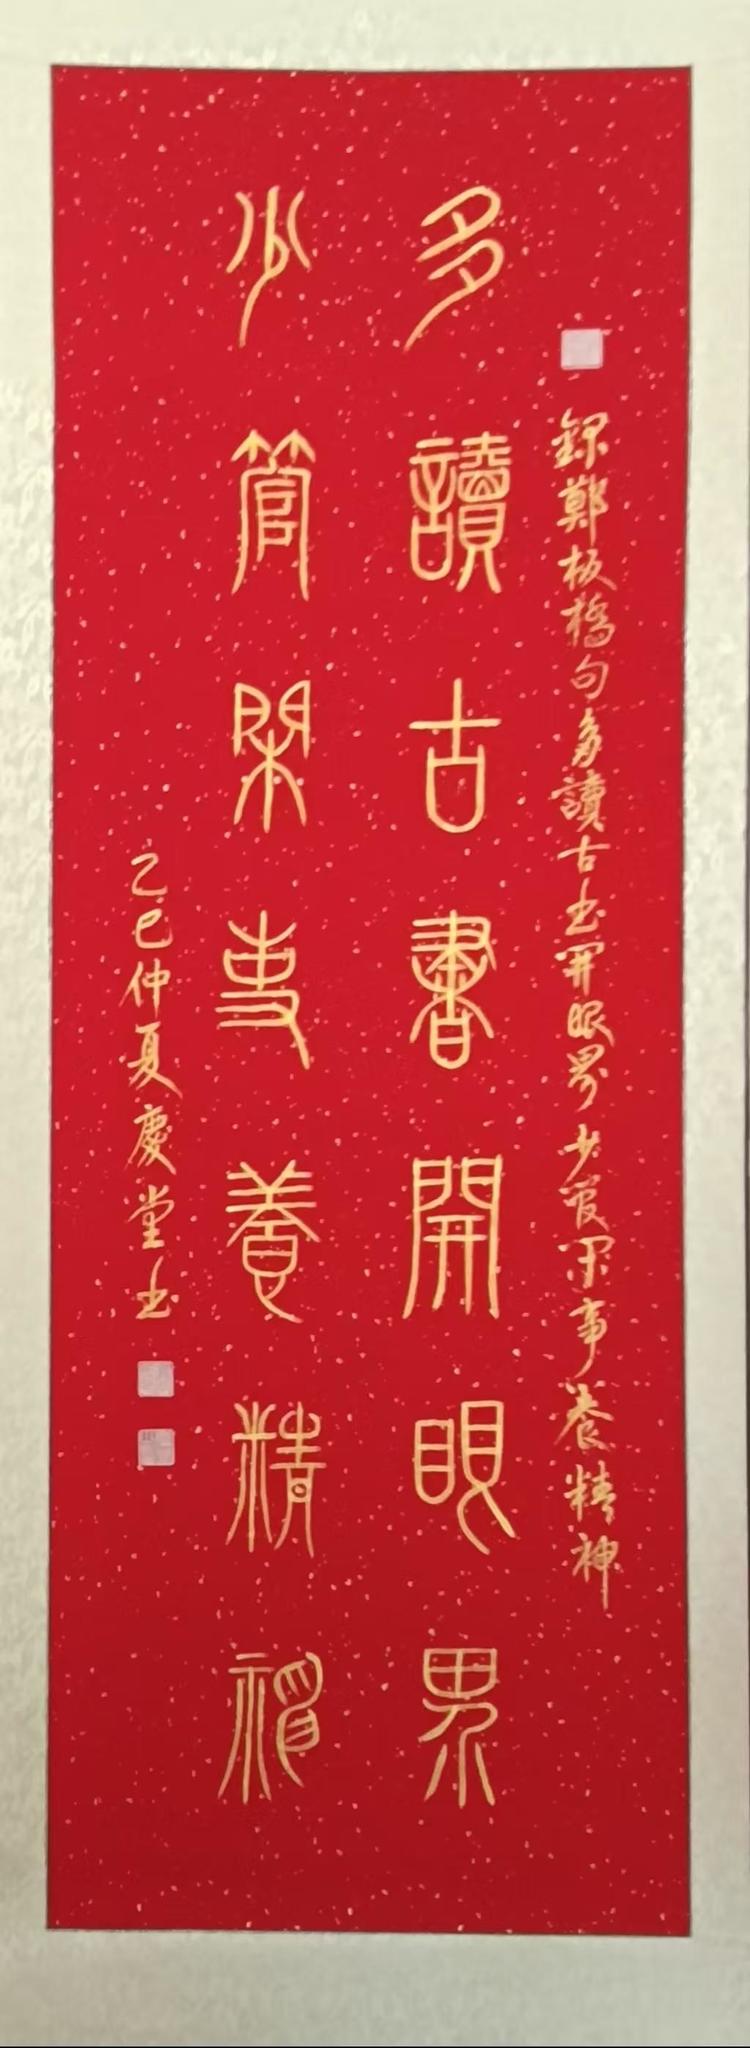 錄鄭板橋句多讀古书開眼界少管闲事养精神
多讀古書開眼界
少管閑事養精神
乙巳仲夏慶堂书